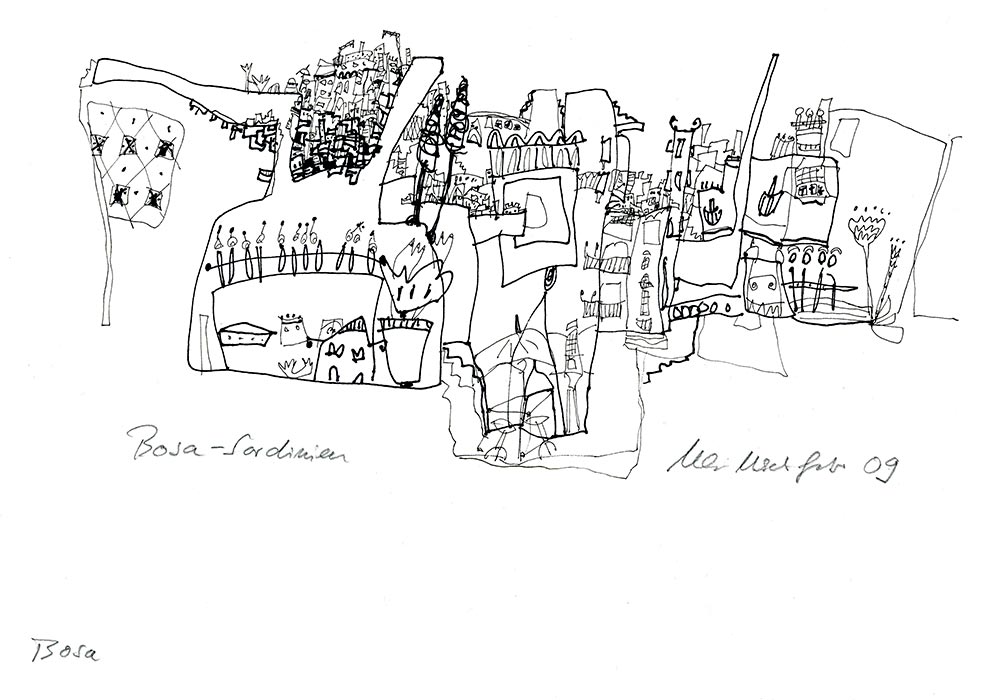 Bosa-Sardinien
09
Bosa